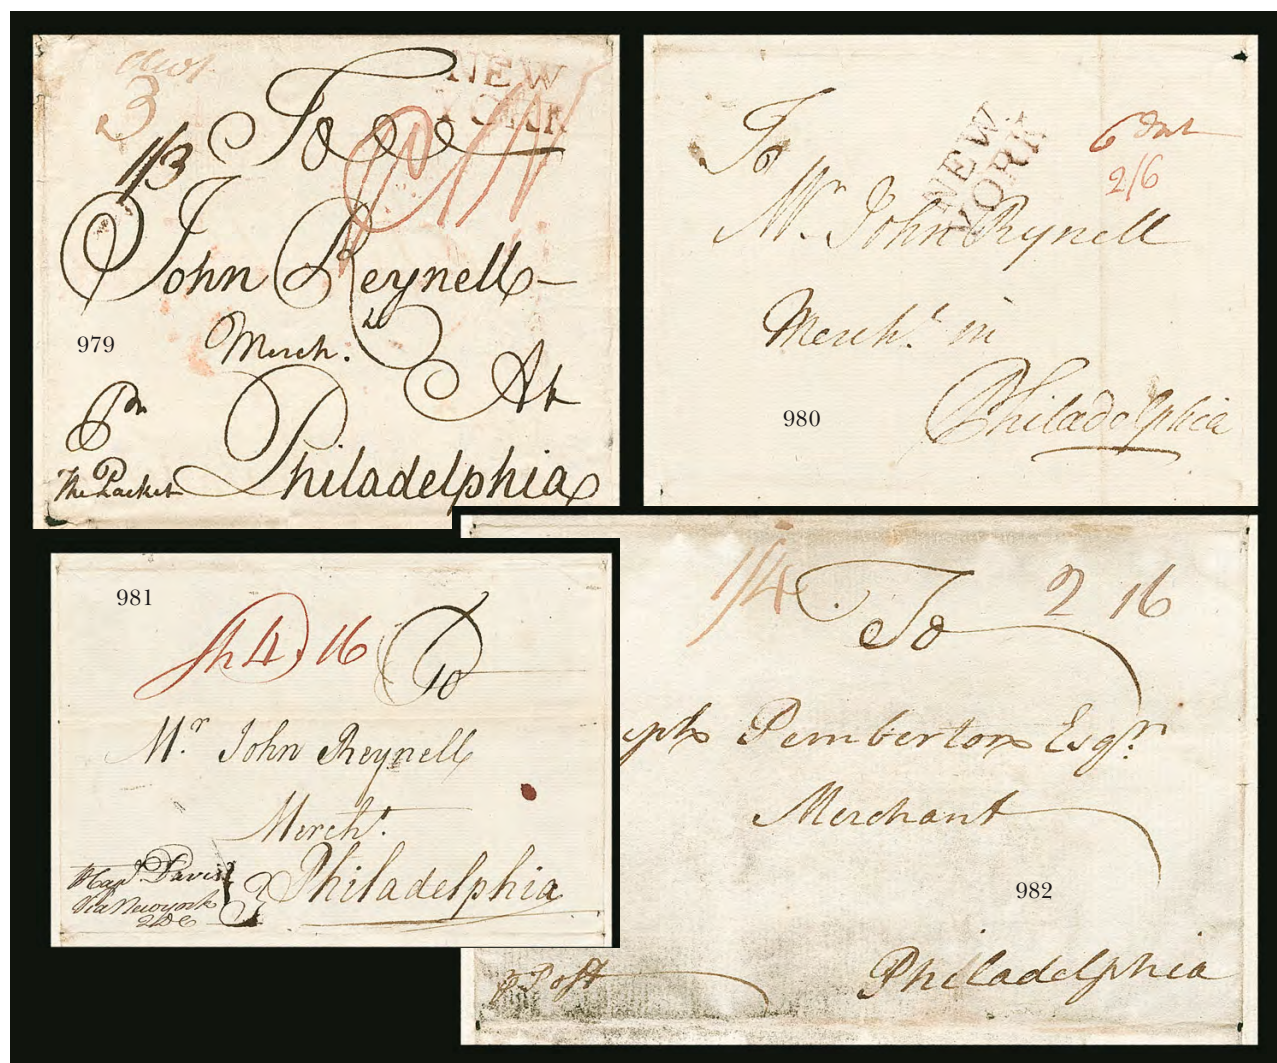 3
NEW
YORK
1/3
To
John Reynell
Merch.
979
At
Pr
The Packet
Philadelphia
NEW
YORK
6 dwt
2/6
To
Mr. John Reynell
Merch.t in
980
Philadelphia
981
sh 4. 16
To
Mr. John Reynell
Mercht.
Capt. Davis
Via Newyork
Philadelphia
1/4
To
2 16
Pemberton Esqr.
Merchant
982
p Post
Philadelphia